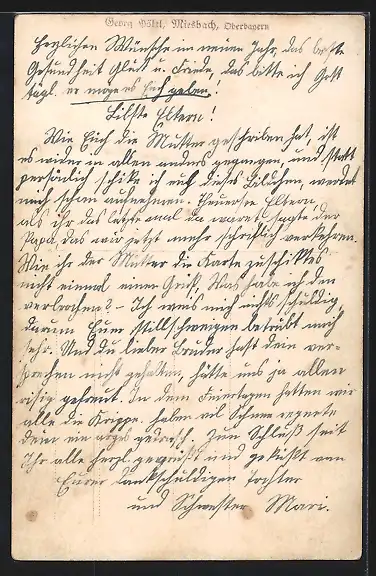 Georg Pölzl, Miesbach, Oberbayern
Herzlichen Wünsche im neuen Jahr, das beste
Gesundheit Glück u. Friede, das bitte ich Gott
tägl. er möge es Euch geben!
Libste Eltern!
Wie Euch die Mutter geschriben hat, ist
es wider in allen anders gegangen, und statt
persönlich schike ich auf dieses Bildchen, werdet
mich schon aufnehmen. Theuerste Eltern,
als ihr das letzte mal da waret sagte der
Papa, das wir jetzt mehr schriftlich verkehren.
Wie ihr der Mutter die Karte zu schiktes
nicht einmal einen Gruß, Was habe ich den
verbrochen? - Ich weis mich nichts schuldig,
darum Euer stillschweigen betrübt mich
sehr. Und du lieber Bruder hast dein ver-
sprechen nicht gehalten, hätte uns ja allen
risig gefreut. In dem Feiertagen hatten wir
alle die Krippe, haben vil Schnee
den ein Zum Schluß seit
Ihr alle herzl. gegrüßt und geküßt von
Eurer dankschuldigen Tochter
und Schwester Mari.